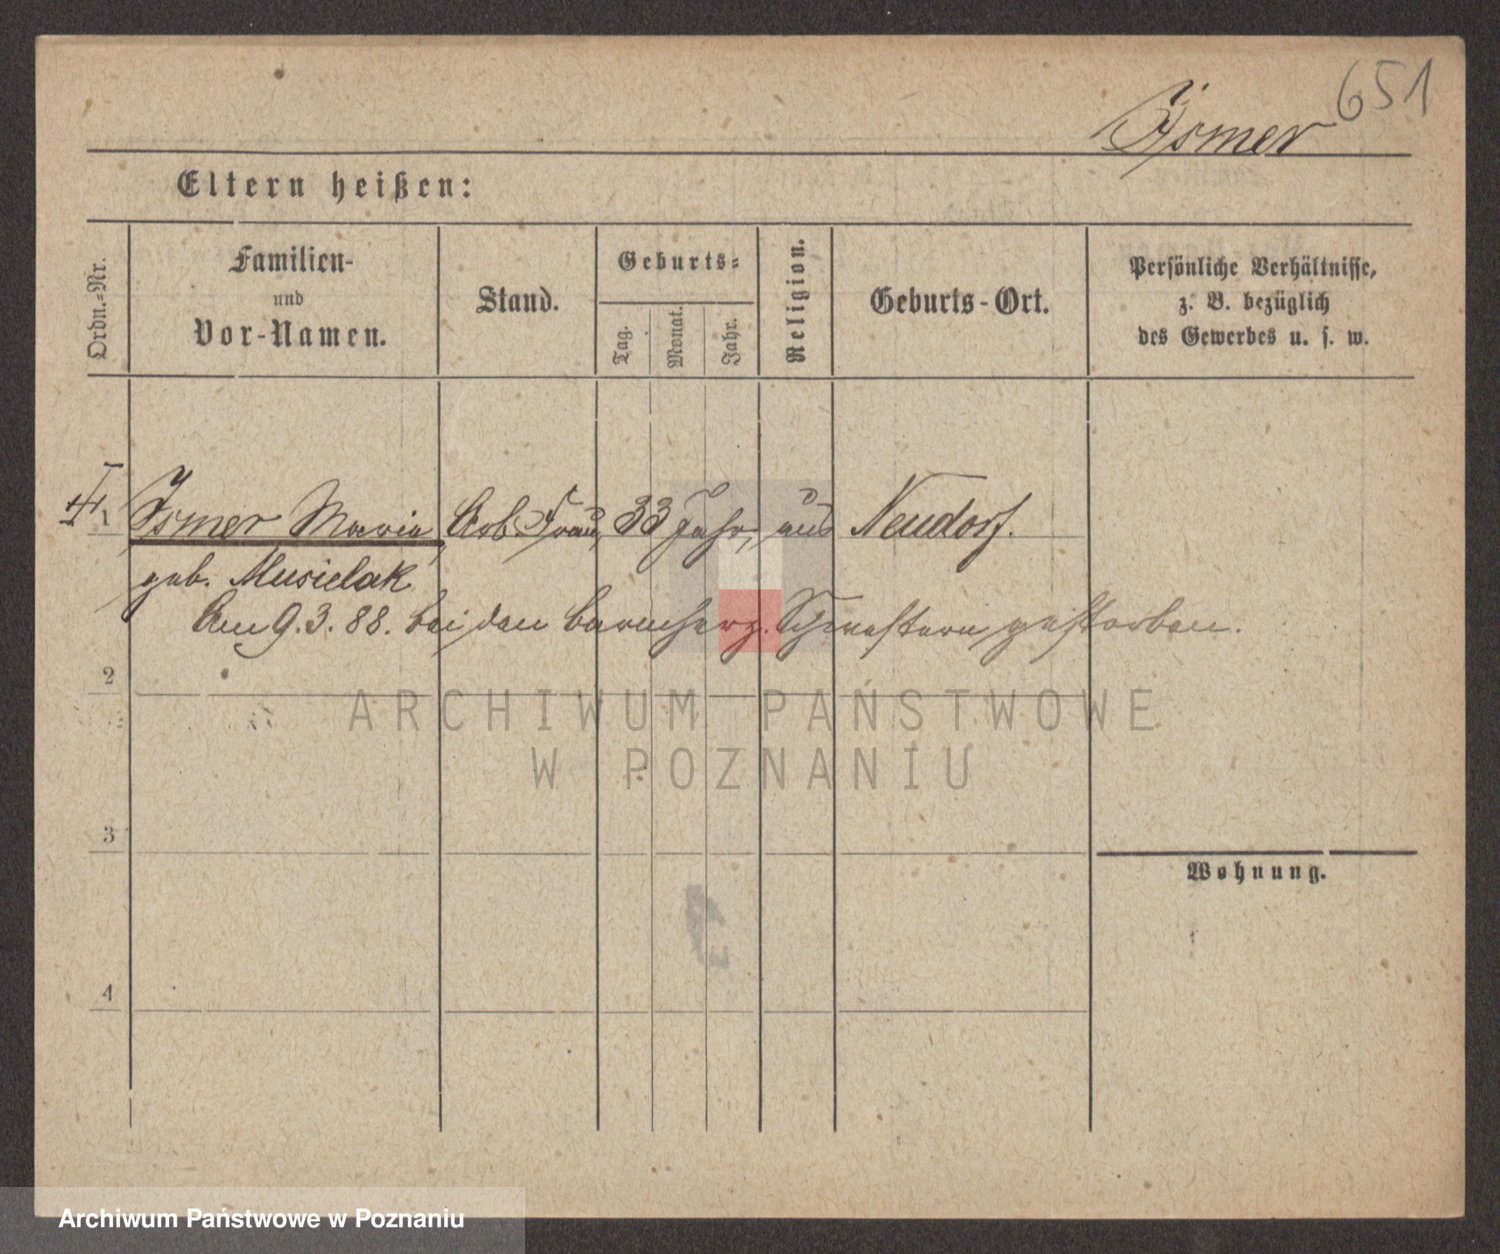 651
Ismer
Eltern heißen:
Ordn.-Nr.
Familien-
und
Vor-Namen.
Stand.
Geburts-
Tag.
Monat.
Jahr.
Religion.
Geburts-Ort.
Persönliche Verhältnisse,
z. B. bezüglich
des Gewerbes u. s. w.
1 Ismer Maria Arb. Frau, 33 Jahr, aus Neudorf.
geb. Musielak
Am 9.3.88. bei den barmherz. Schwestern gestorben.
2
ARCHIWUM PAŃSTWOWE
W POZNANIU
3
Wohnung.
4
Archiwum Państwowe w Poznaniu